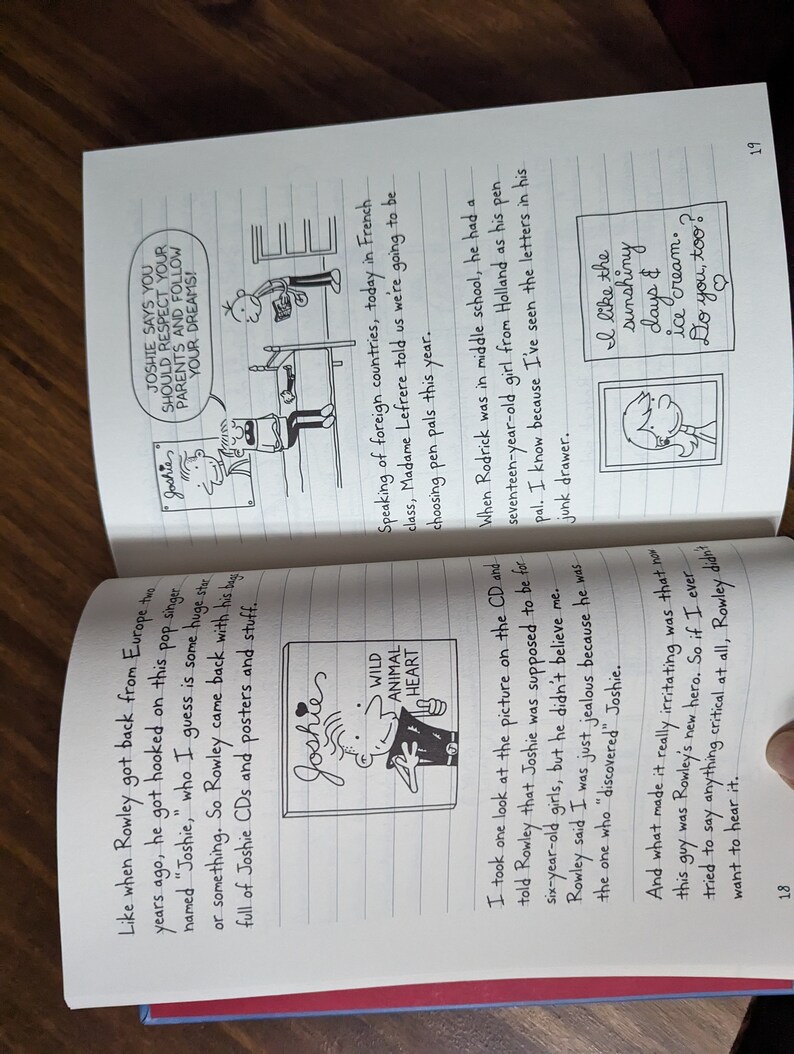 Like when Rowley got back from Europe two
years ago, he got hooked on this pop singer
named "Joshie," who I guess is some huge star
or something. So Rowley came back with his bags
full of Joshie CDs and posters and stuff.
Joshie
WILD
ANIMAL
HEART
I took one look at the picture on the CD and
told Rowley that Joshie was supposed to be for
six-year-old girls, but he didn't believe me.
Rowley said I was just jealous because he was
the one who "discovered" Joshie.
And what made it really irritating was that now
this guy was Rowley's new hero. So if I ever
tried to say anything critical at all, Rowley didn't
want to hear it.
18
Joshie
JOSHIE SAYS YOU
SHOULD RESPECT YOUR
PARENTS AND FOLLOW
YOUR DREAMS!
Speaking of foreign countries, today in French
class, Madame Lefrere told us we're going to be
choosing pen pals this year.
When Rodrick was in middle school, he had a
seventeen-year-old girl from Holland as his pen
pal. I know because I've seen the letters in his
junk drawer.
I like the
sunshiny
days &
ice cream.
Do you, too?
19